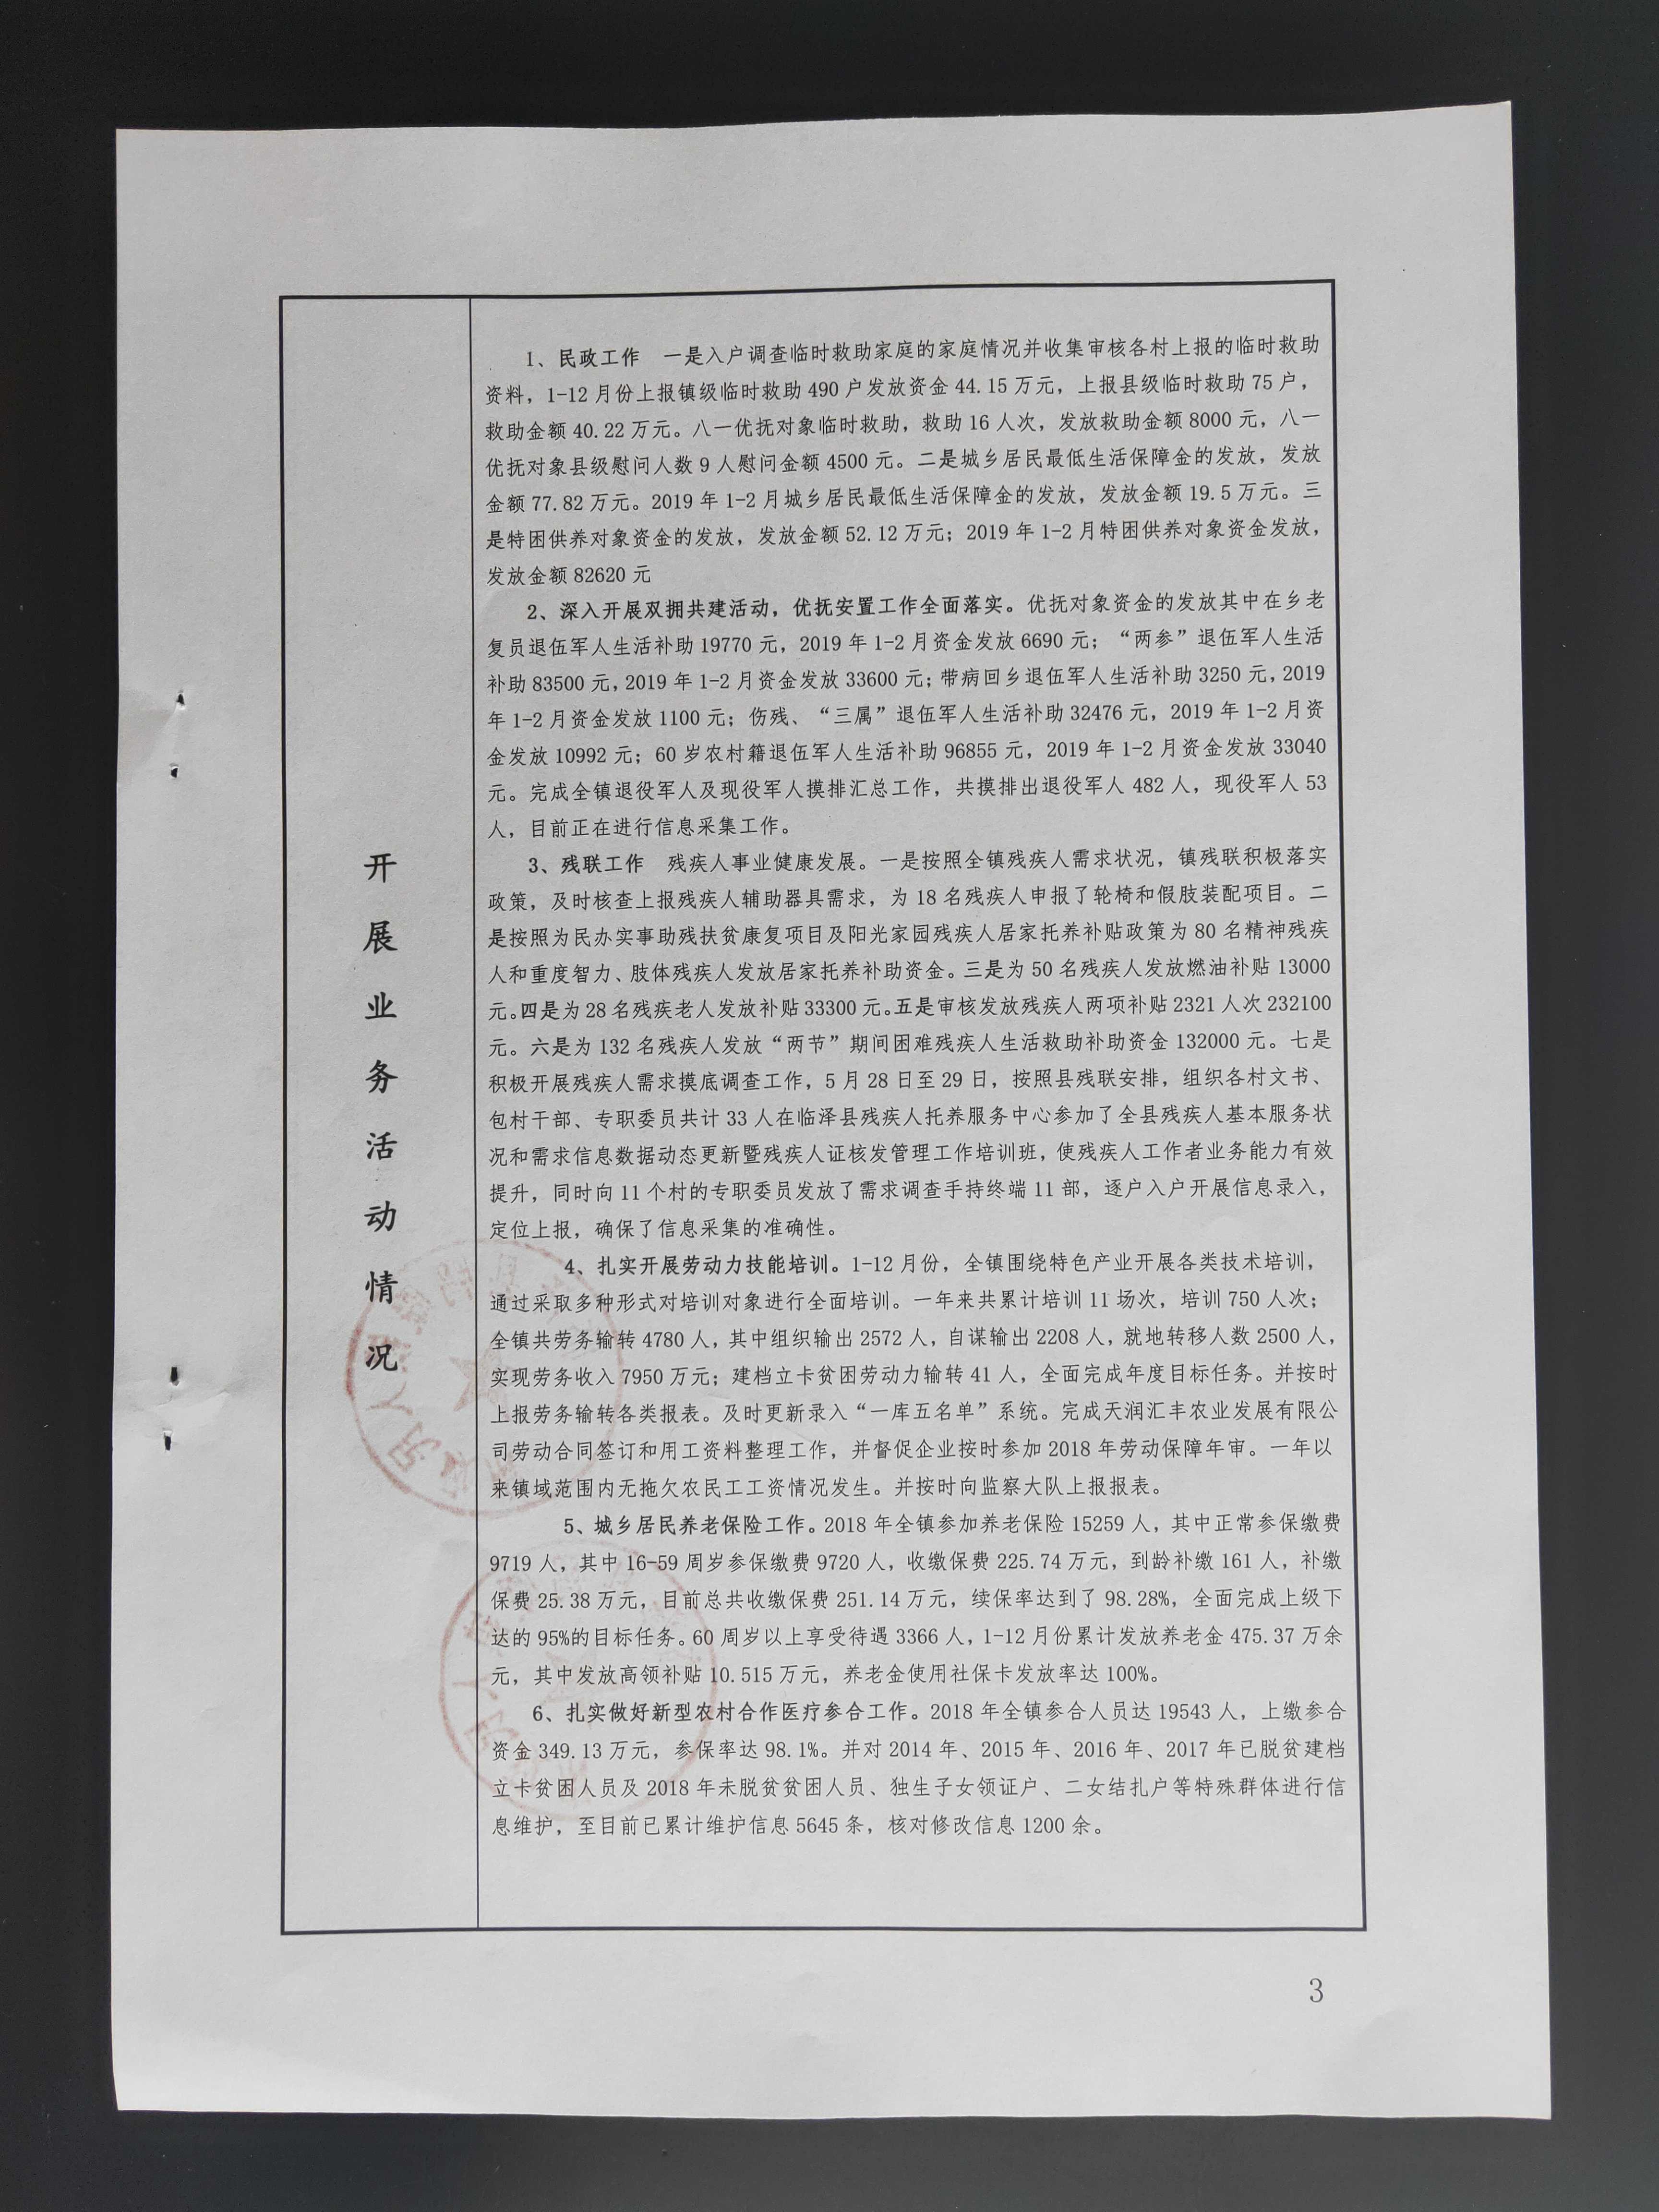 开展业务活动情况
1、民政工作 一是入户调查临时救助家庭的家庭情况并收集审核各村上报的临时救助
资料，1-12月份上报镇级临时救助490户发放资金44.15万元，上报县级临时救助75户，
救助金额40.22万元。八一优抚对象临时救助，救助16人次，发放救助金额8000元，八一
优抚对象县级慰问人数9人慰问金额4500元。二是城乡居民最低生活保障金的发放，发放
金额77.82万元。2019年1-2月城乡居民最低生活保障金的发放，发放金额19.5万元。三
是特困供养对象资金的发放，发放金额52.12万元；2019年1-2月特困供养对象资金发放，
发放金额82620元
2、深入开展双拥共建活动，优抚安置工作全面落实。优抚对象资金的发放其中在乡老
复员退伍军人生活补助19770元，2019年1-2月资金发放6690元；“两参”退伍军人生活
补助83500元，2019年1-2月资金发放33600元；带病回乡退伍军人生活补助3250元，2019
年1-2月资金发放1100元；伤残、“三属”退伍军人生活补助32476元，2019年1-2月资
金发放10992元；60岁农村籍退伍军人生活补助96855元，2019年1-2月资金发放33040
元。完成全镇退役军人及现役军人摸排汇总工作，共摸排出退役军人482人，现役军人53
人，目前正在进行信息采集工作。
3、残联工作 残疾人事业健康发展。一是按照全镇残疾人需求状况，镇残联积极落实
政策，及时核查上报残疾人辅助器具需求，为18名残疾人申报了轮椅和假肢装配项目。二
是按照为民办实事助残扶贫康复项目及阳光家园残疾人居家托养补贴政策为80名精神残疾
人和重度智力、肢体残疾人发放居家托养补助资金。三是为50名残疾人发放燃油补贴13000
元。四是为28名残疾老人发放补贴33300元。五是审核发放残疾人两项补贴2321人次232100
元。六是为132名残疾人发放“两节”期间困难残疾人生活救助补助资金132000元。七是
积极开展残疾人需求摸底调查工作，5月28日至29日，按照县残联安排，组织各村文书、
包村干部、专职委员共计33人在临泽县残疾人托养服务中心参加了全县残疾人基本服务状
况和需求信息数据动态更新暨残疾人证核发管理工作培训班，使残疾人工作者业务能力有效
提升，同时向11个村的专职委员发放了需求调查手持终端11部，逐户入户开展信息录入，
定位上报，确保了信息采集的准确性。
4、扎实开展劳动力技能培训。1-12月份，全镇围绕特色产业开展各类技术培训，
通过采取多种形式对培训对象进行全面培训。一年来共累计培训11场次，培训750人次；
全镇共劳务输转4780人，其中组织输出2572人，自谋输出2208人，就地转移人数2500人，
实现劳务收入7950万元；建档立卡贫困劳动力输转41人，全面完成年度目标任务。并按时
上报劳务输转各类报表。及时更新录入“一库五名单”系统。完成天润汇丰农业发展有限公
司劳动合同签订和用工资料整理工作，并督促企业按时参加2018年劳动保障年审。一年以
来镇域范围内无拖欠农民工工资情况发生。并按时向监察大队上报报表。
5、城乡居民养老保险工作。2018年全镇参加养老保险15259人，其中正常参保缴费
9719人，其中16-59周岁参保缴费9720人，收缴保费225.74万元，到龄补缴161人，补缴
保费25.38万元，目前总共收缴保费251.14万元，续保率达到了98.28%，全面完成上级下
达的95%的目标任务。60周岁以上享受待遇3366人，1-12月份累计发放养老金475.37万余
元，其中发放高领补贴10.515万元，养老金使用社保卡发放率达100%。
6、扎实做好新型农村合作医疗参合工作。2018年全镇参合人员达19543人，上缴参合
资金349.13万元，参保率达98.1%。并对2014年、2015年、2016年、2017年已脱贫建档
立卡贫困人员及2018年未脱贫贫困人员、独生子女领证户、二女结扎户等特殊群体进行信
息维护，至目前已累计维护信息5645条，核对修改信息1200余。
3